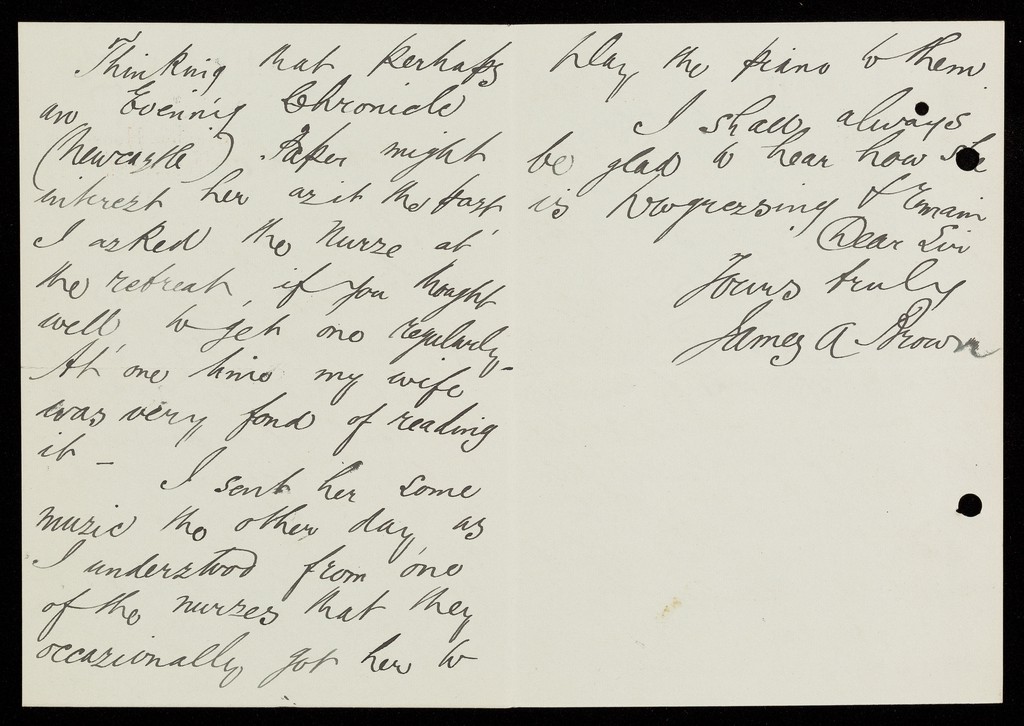 Thinking that perhaps
an Evening Chronicle
(Newcastle) Paper might
interest her as in the past
I asked the nurse at
the retreat, if you thought
well to get one regularly –
At one time my wife
was very fond of reading
it –
I sent her some
music the other day, as
I understood from one
of the nurses that they
occasionally got her to
play the piano to them.
I shall always
be glad to hear how she
is progressing & remain
Dear Sir
Yours truly
James A Brown